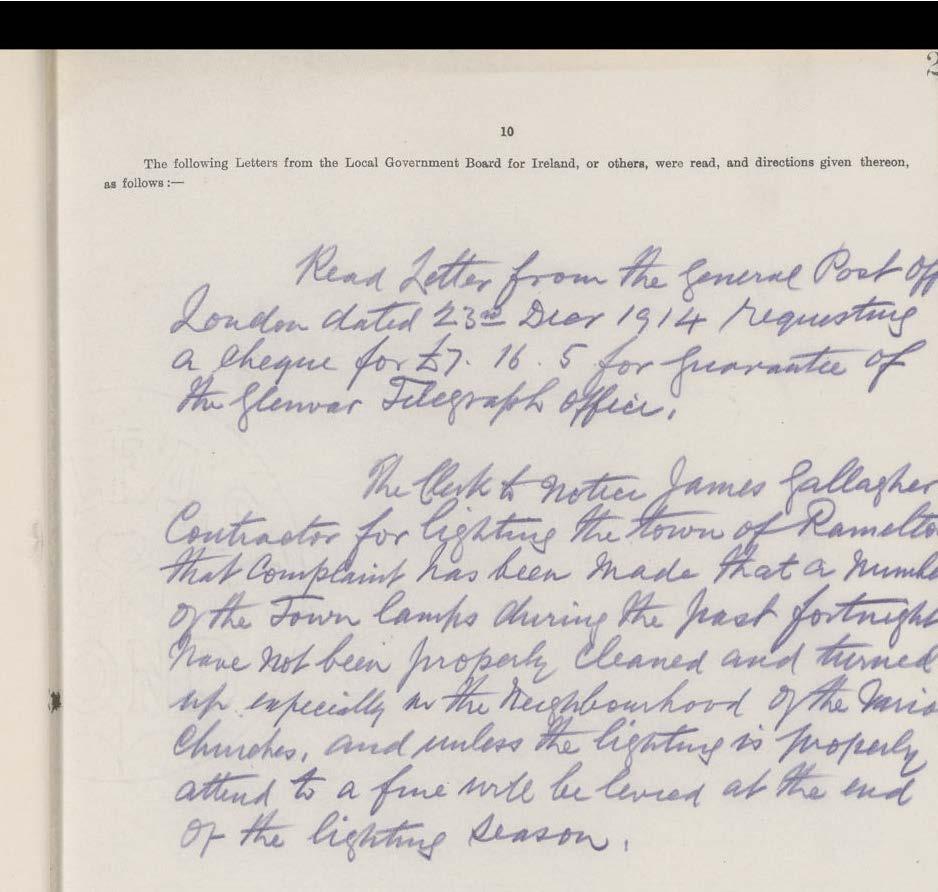 2
10
The following Letters from the Local Government Board for Ireland, or others, were read, and directions given thereon,
as follows :—
Read Letter from the General Post Off
London dated 23rd Decr 1914 requesting
a cheque for £7. 16. 5 for guarantee of
the Glenvar Telegraph Office.
The Clerk to notice James Gallagher
Contractor for lighting the town of Ramelto
that Complaint has been made that a numbe
of the Town lamps during the past fortnight
have not been properly cleaned and turned
up especially in the Neighbourhood of the Vario
Churches, and unless the lighting is properly
attend to a fine will be levied at the end
of the lighting season.